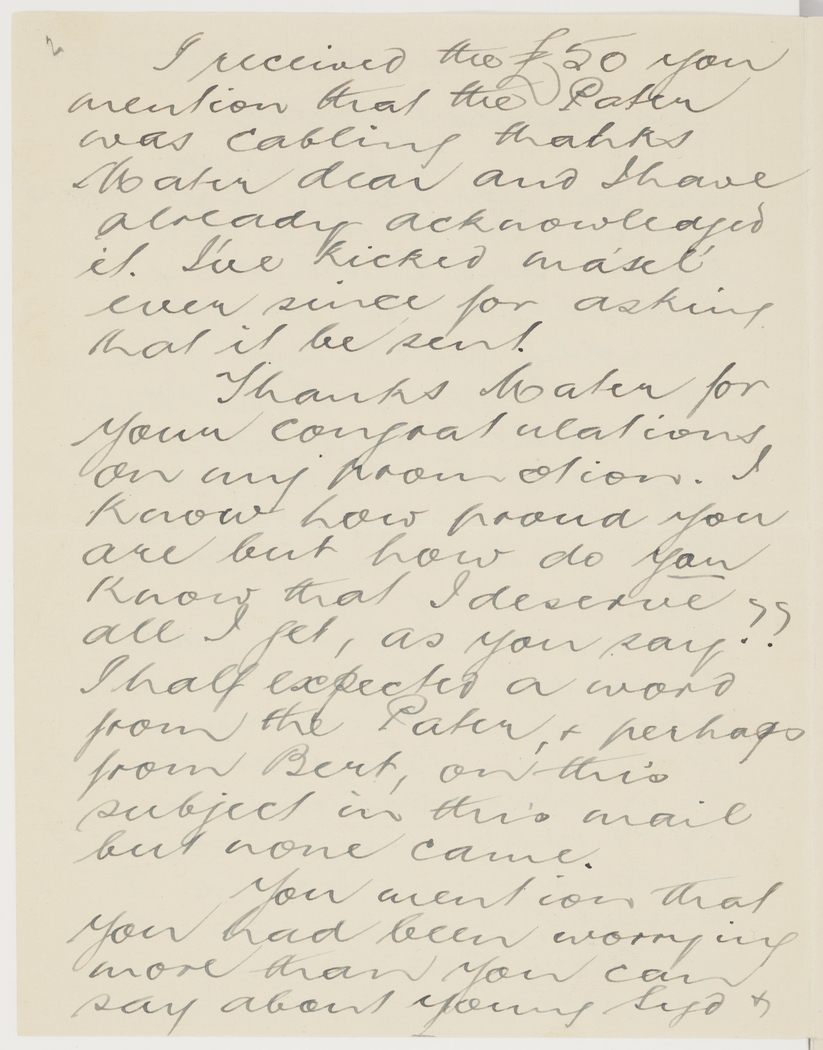 2
I received the £50 you
mention that the Pater
was cabling thanks
Mater dear and I have
already acknowledged
it. I've kicked masel'
ever since for asking
that it be sent.
Thanks Mater for
your congratulations
on my promotion. I
know how proud you
are but how do you
know that I deserve
all I get, as you say??
I half expected a word
from the Pater, & perhaps
from Bert, on this
subject in this mail
but none came.
You mention that
you had been worrying
more than you can
say about young Syd &